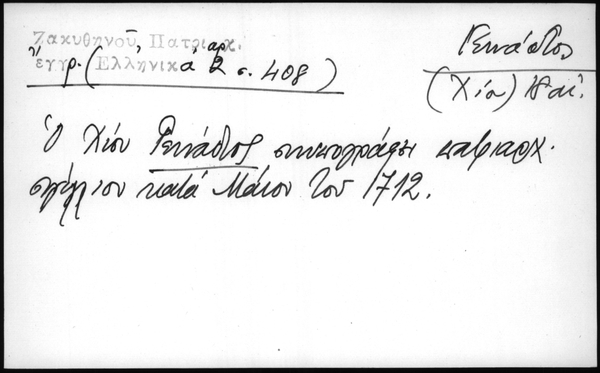 Ζακυθηνοῦ, Πατριαρχ.
ἔγγρ. (Ἑλληνικά, ἀρ. 2 σ. 408)
Γεννάδιος
(Χίου) 18 αἰ.
Ὁ Χίου Γεννάδιος συνυπογράφει πατριαρχ.
σιγίλλιον κατά Μάιον τοῦ 1712.